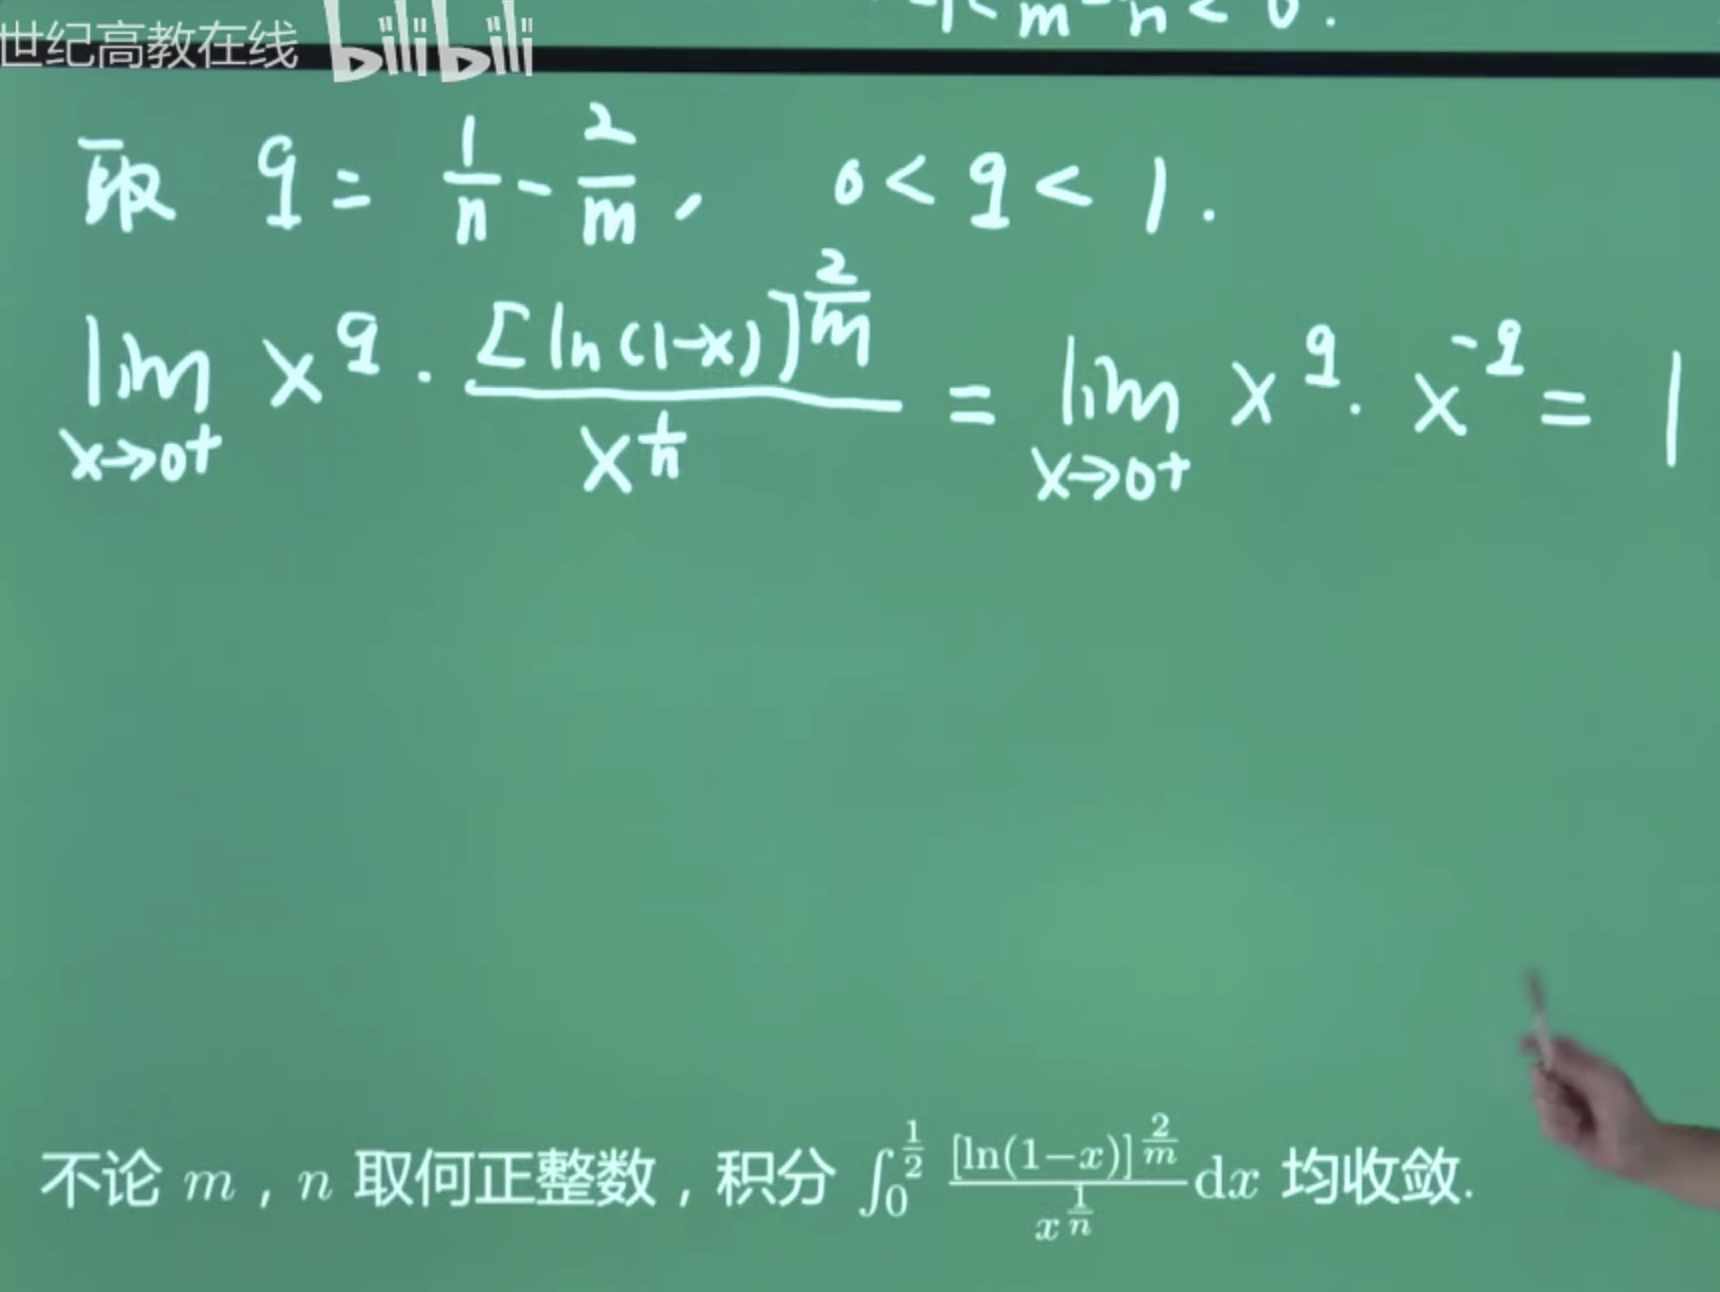 世纪高教在线 bilibili
-1 < 2/m - 1/n < 0 .
取 q = 1/n - 2/m , 0 < q < 1 .
lim x→0+ x^q · [ln(1-x)]^(2/m) / x^(1/n) = lim x→0+ x^q · x^(-q) = 1
不论 m , n 取何正整数 , 积分 ∫_0^(1/2) [ln(1-x)]^(2/m) / x^(1/n) dx 均收敛.